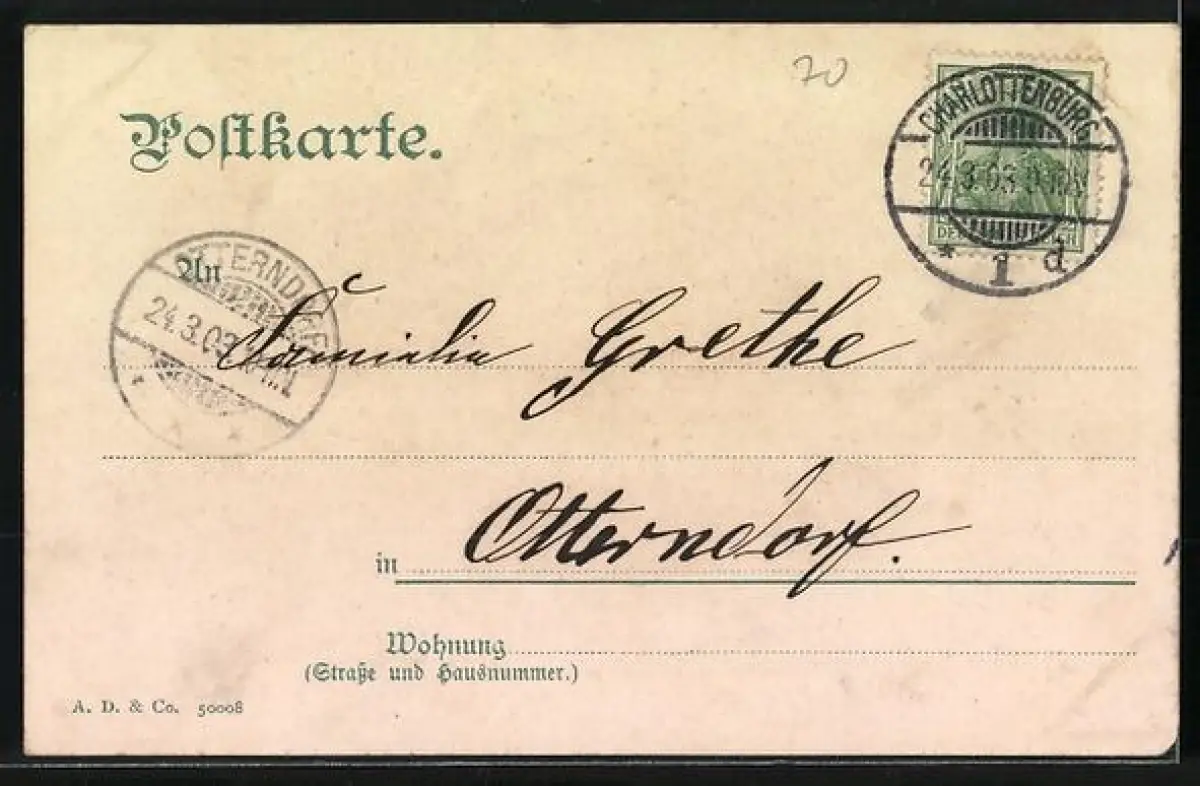 70
Postkarte.
CHARLOTTENBURG
24.3.03
* 1 d
OTTERNDORF
24.3.03
An
Familie Grethe
in Otterndorf.
Wohnung
(Straße und Hausnummer.)
A. D. & Co. 50008